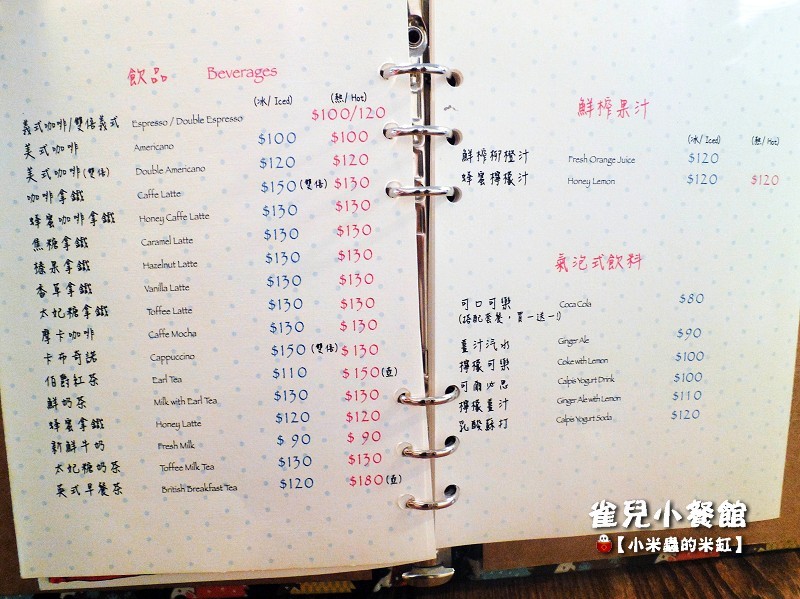 飲品 Beverages
(冰/Iced) (熱/Hot)
義式咖啡/雙倍義式 Espresso / Double Espresso $100/120
美式咖啡 Americano $100 $100
美式咖啡(雙倍) Double Americano $120 $120
咖啡拿鐵 Caffe Latte $150(雙倍) $130
蜂蜜咖啡拿鐵 Honey Caffe Latte $130 $130
焦糖拿鐵 Caramel Latte $130 $130
榛果拿鐵 Hazelnut Latte $130 $130
香草拿鐵 Vanilla Latte $130 $130
太妃糖拿鐵 Toffee Latte $130 $130
摩卡咖啡 Caffe Mocha $130 $130
卡布奇諾 Cappuccino $150(雙倍) $130
伯爵紅茶 Earl Tea $110 $150(壺)
鮮奶茶 Milk with Earl Tea $130 $130
蜂蜜拿鐵 Honey Latte $120 $120
新鮮牛奶 Fresh Milk $ 90 $ 90
太妃糖奶茶 Toffee Milk Tea $130 $130
英式早餐茶 British Breakfast Tea $120 $180(壺)
鮮榨果汁
(冰/Iced) (熱/Hot)
鮮榨柳橙汁 Fresh Orange Juice $120
蜂蜜檸檬汁 Honey Lemon $120 $120
氣泡式飲料
可口可樂 Coca Cola $80
(搭配套餐，買一送一!)
薑汁汽水 Ginger Ale $90
檸檬可樂 Coke with Lemon $100
可爾必思 Calpis Yogurt Drink $100
檸檬薑汁 Ginger Ale with Lemon $110
乳酸蘇打 Calpis Yogurt Soda $120
雀兒小餐館
【小米蟲的米缸】